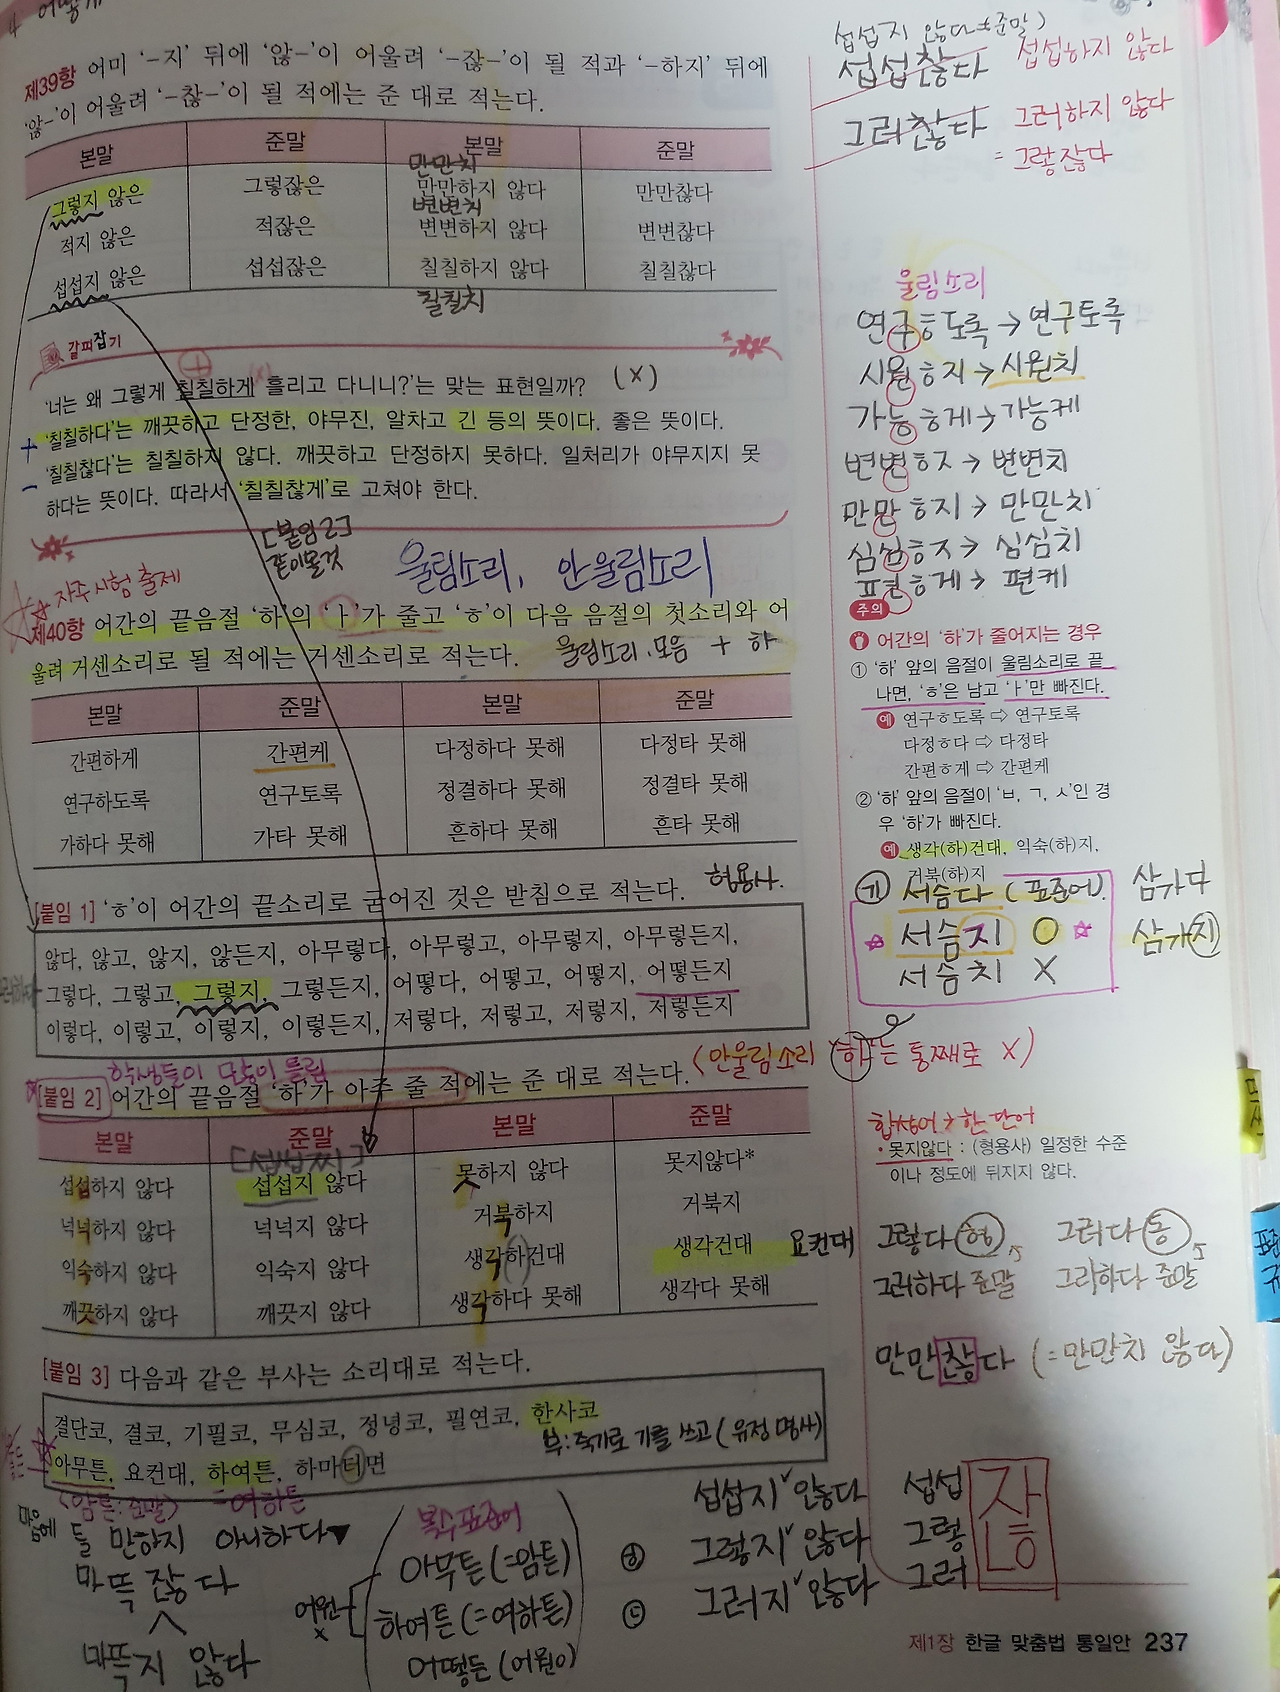 4 어떻게
제39항 어미 '-지' 뒤에 '않-'이 어울려 '-잖-'이 될 적과 '-하지' 뒤에
'않-'이 어울려 '-찮-'이 될 적에는 준 대로 적는다.
본말 준말 본말 준말
만만치
그렇지 않은 그렇잖은 만만하지 않다 만만찮다
변변치
적지 않은 적잖은 변변하지 않다 변변찮다
섭섭지 않은 섭섭잖은 칠칠하지 않다 칠칠찮다
칠칠치
갈피잡기
'너는 왜 그렇게 칠칠하게 흘리고 다니니?'는 맞는 표현일까? (X)
+ '칠칠하다'는 깨끗하고 단정한, 야무진, 알차고 긴 등의 뜻이다. 좋은 뜻이다.
- '칠칠찮다'는 칠칠하지 않다. 깨끗하고 단정하지 못하다. 일처리가 야무지지 못
하다는 뜻이다. 따라서 '칠칠찮게'로 고쳐야 한다.
[붙임2]
같이볼것
울림소리, 안울림소리
☆ 자주 시험 출제
제40항 어간의 끝음절 '하'의 'ㅏ'가 줄고 'ㅎ'이 다음 음절의 첫소리와 어
울려 거센소리로 될 적에는 거센소리로 적는다. 울림소리.모음 + 하
본말 준말 본말 준말
간편하게 간편케 다정하다 못해 다정타 못해
연구하도록 연구토록 정결하다 못해 정결타 못해
가하다 못해 가타 못해 흔하다 못해 흔타 못해
형용사.
[붙임 1] 'ㅎ'이 어간의 끝소리로 굳어진 것은 받침으로 적는다.
않다, 않고, 않지, 않든지, 아무렇다, 아무렇고, 아무렇지, 아무렇든지,
그렇다, 그렇고, 그렇지, 그렇든지, 어떻다, 어떻고, 어떻지, 어떻든지
이렇다, 이렇고, 이렇지, 이렇든지, 저렇다, 저렇고, 저렇지, 저렇든지
학생들이 많이 틀림
[붙임 2] 어간의 끝음절 '하'가 아주 줄 적에는 준 대로 적는다. (안울림소리 '하'는 통째로 X)
본말 준말 본말 준말
섭섭하지 않다 섭섭지 않다 못하지 않다 못지않다*
넉넉하지 않다 넉넉지 않다 거북하지 거북지
익숙하지 않다 익숙지 않다 생각하건대 생각건대 요컨대
깨끗하지 않다 깨끗지 않다 생각하다 못해 생각다 못해
[붙임 3] 다음과 같은 부사는 소리대로 적는다.
결단코, 결코, 기필코, 무심코, 정녕코, 필연코, 한사코
부:죽기로 기를 쓰고(유정명사)
아무튼, 요컨대, 하여튼, 하마터면
<암튼:준말> =여하튼
마음에 들 만하지 아니하다▼
마뜩잖다
마뜩지 않다
복수표준어
아무튼(=암튼)
어원 X
하여튼(=여하튼)
어떻든(어원O)
섭섭지∨않다
㉯ 그렇지∨않다
㉰ 그러지∨않다
섭섭
그렇
그러
잖
섭섭지 않다(준말)
섭섭찮다 섭섭하지 않다
그러찮다 그러하지 않다
= 그렇잖다
울림소리
연구ㅎ도록 → 연구토록
시원ㅎ지 → 시원치
가능ㅎ게 → 가능케
변변ㅎ지 → 변변치
만만ㅎ지 → 만만치
심심ㅎ지 → 심심치
편ㅎ게 → 편케
주의
어간의 '하'가 줄어지는 경우
① '하' 앞의 음절이 울림소리로 끝
나면, 'ㅎ'은 남고 'ㅏ'만 빠진다.
예 연구ㅎ도록 ⇨ 연구토록
다정ㅎ다 ⇨ 다정타
간편ㅎ게 ⇨ 간편케
② '하' 앞의 음절이 'ㅂ, ㄱ, ㅅ'인 경
우 '하'가 빠진다.
예 생각(하)건대, 익숙(하)지,
거북(하)지
㉮ 서슴다 (표준어) 삼가다
서슴지 O 삼가지
서슴치 X
합성어 → 한 단어
• 못지않다 : (형용사) 일정한 수준
이나 정도에 뒤지지 않다.
그렇다(형) 그러다(동)
그러하다 준말 그리하다 준말
만만찮다 (=만만치 않다)
제1장 한글 맞춤법 통일안 237